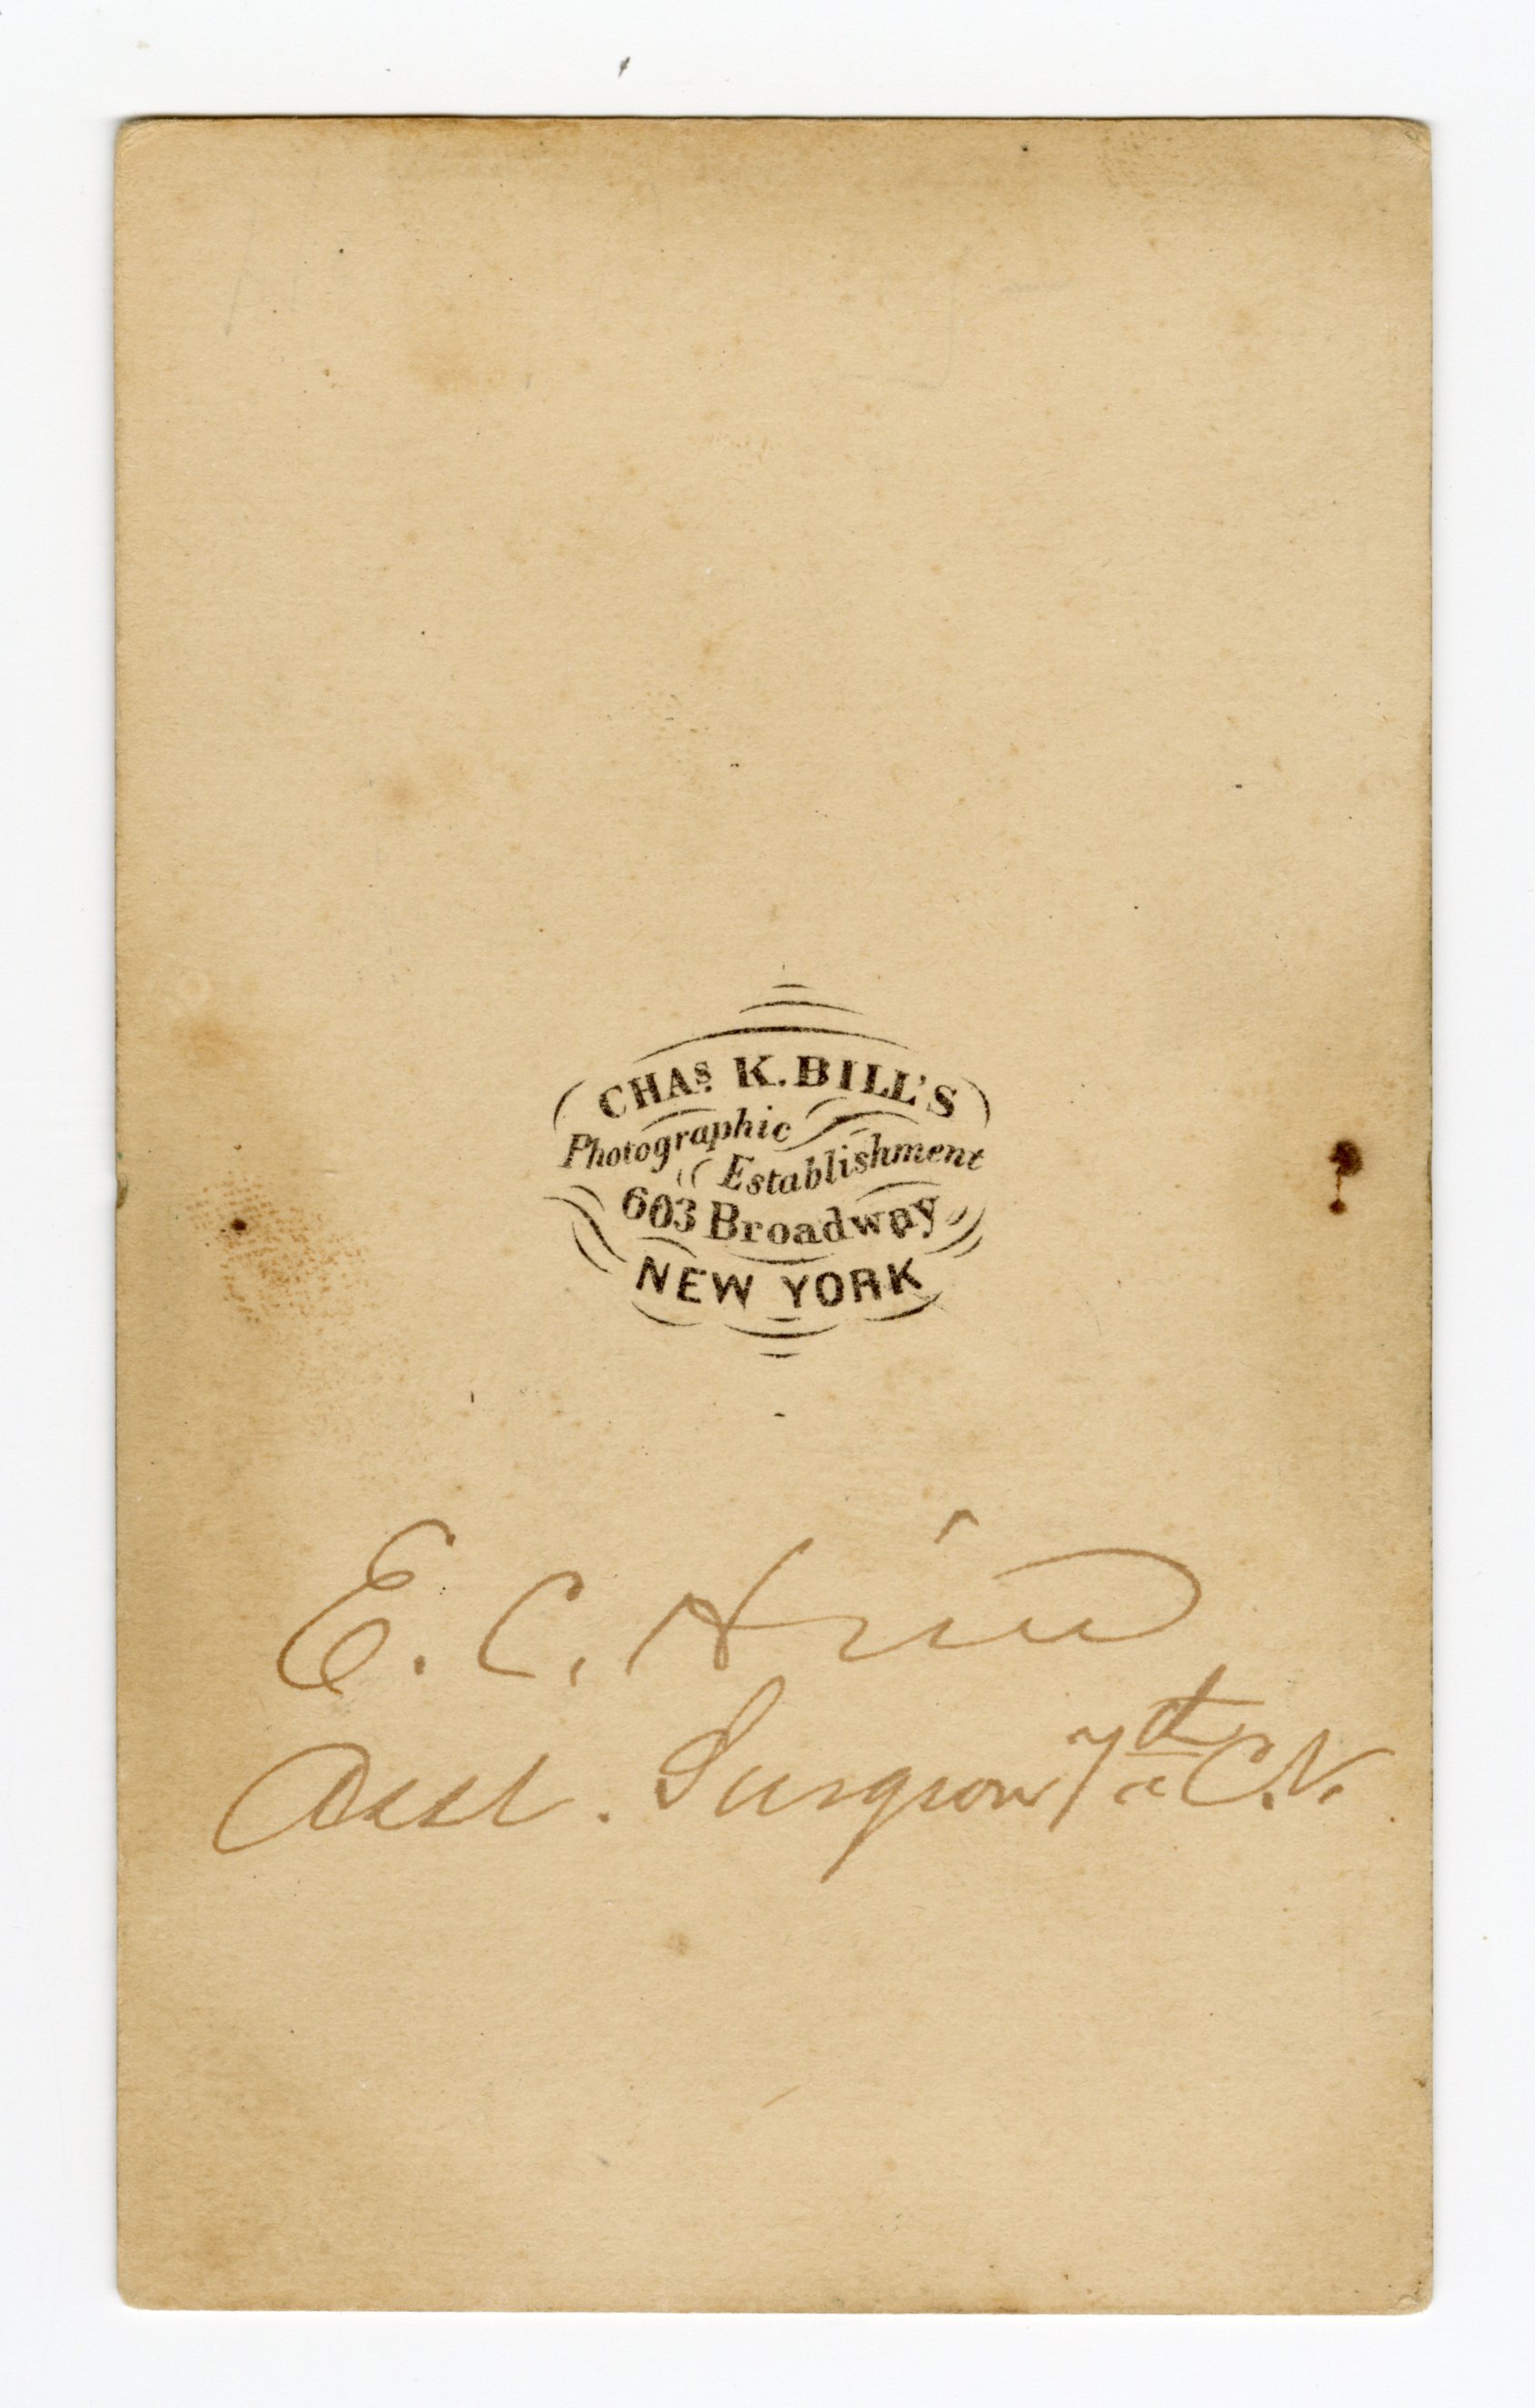 CHAS. K. BILL'S
Photographic
Establishment
603 Broadway
NEW YORK
E. C. Hine
Asst. Surgeon 7th C.V.